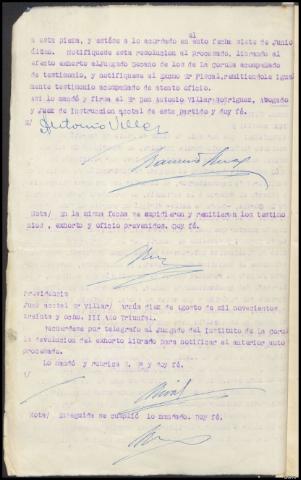 al
a esta pieza, y estése a lo acordado en auto fecha siete de Junio
último. Notifíquese esta resolucion al procesado, librando al
efecto exhorto al Juzgado Decano de los de La Coruña acompañado
de testimonio, y notifíquese al Ilmo Sr Fiscal, remitiendole igual
mente testimonio acompañado de atento oficio.
Así lo mandó y firma el Sr Don Antonio Villar Rodriguez, Abogado
y Juez de Instruccion acctal de este partido y doy fé.
E/
Antonio Villar
Nota/ En la misma fecha se expidieron y remitieron los testimo
nios, exhorto y oficio prevenidos. Doy fé.
Providencia
Juez acctal Sr Villar/ Arzúa diez de Agosto de mil novecientos
treinta y ocho. III Año Triunfal.
Recuérdese por telégrafo al Juzgado del Instituto de La Coruña
la devolucion del exhorto librado para notificar el anterior auto
procesado.
Lo mandó y rubrica S. Sª doy fé.
E/
Nota/ Enseguida se cumplió lo mandado. Doy fé.